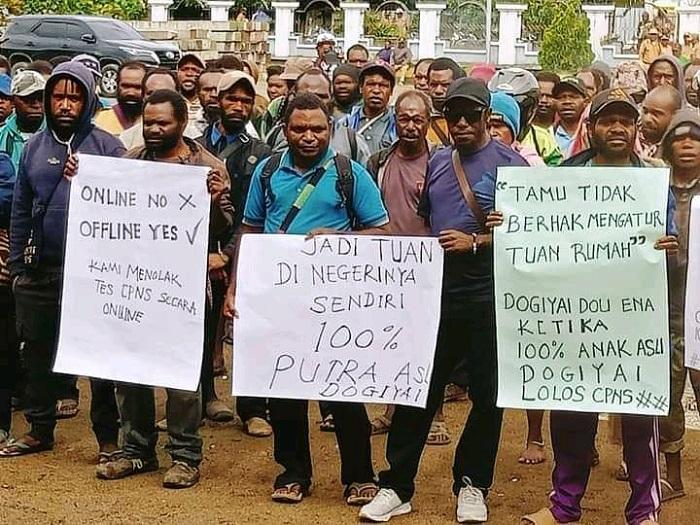 ONLINE NO X
OFFLINE YES ✓
KAMI MENOLAK
TES CPNS SECARA
ONLINE
JADI TUAN
DI NEGERINYA
SENDIRI
100%
PUTRA ASLI
DOGIYAI
"TAMU TIDAK
BERHAK MENGATUR
TUAN RUMAH"
DOGIYAI DOU ENA
KETIKA
100% ANAK ASLI
DOGIYAI
LOLOS CPNS##